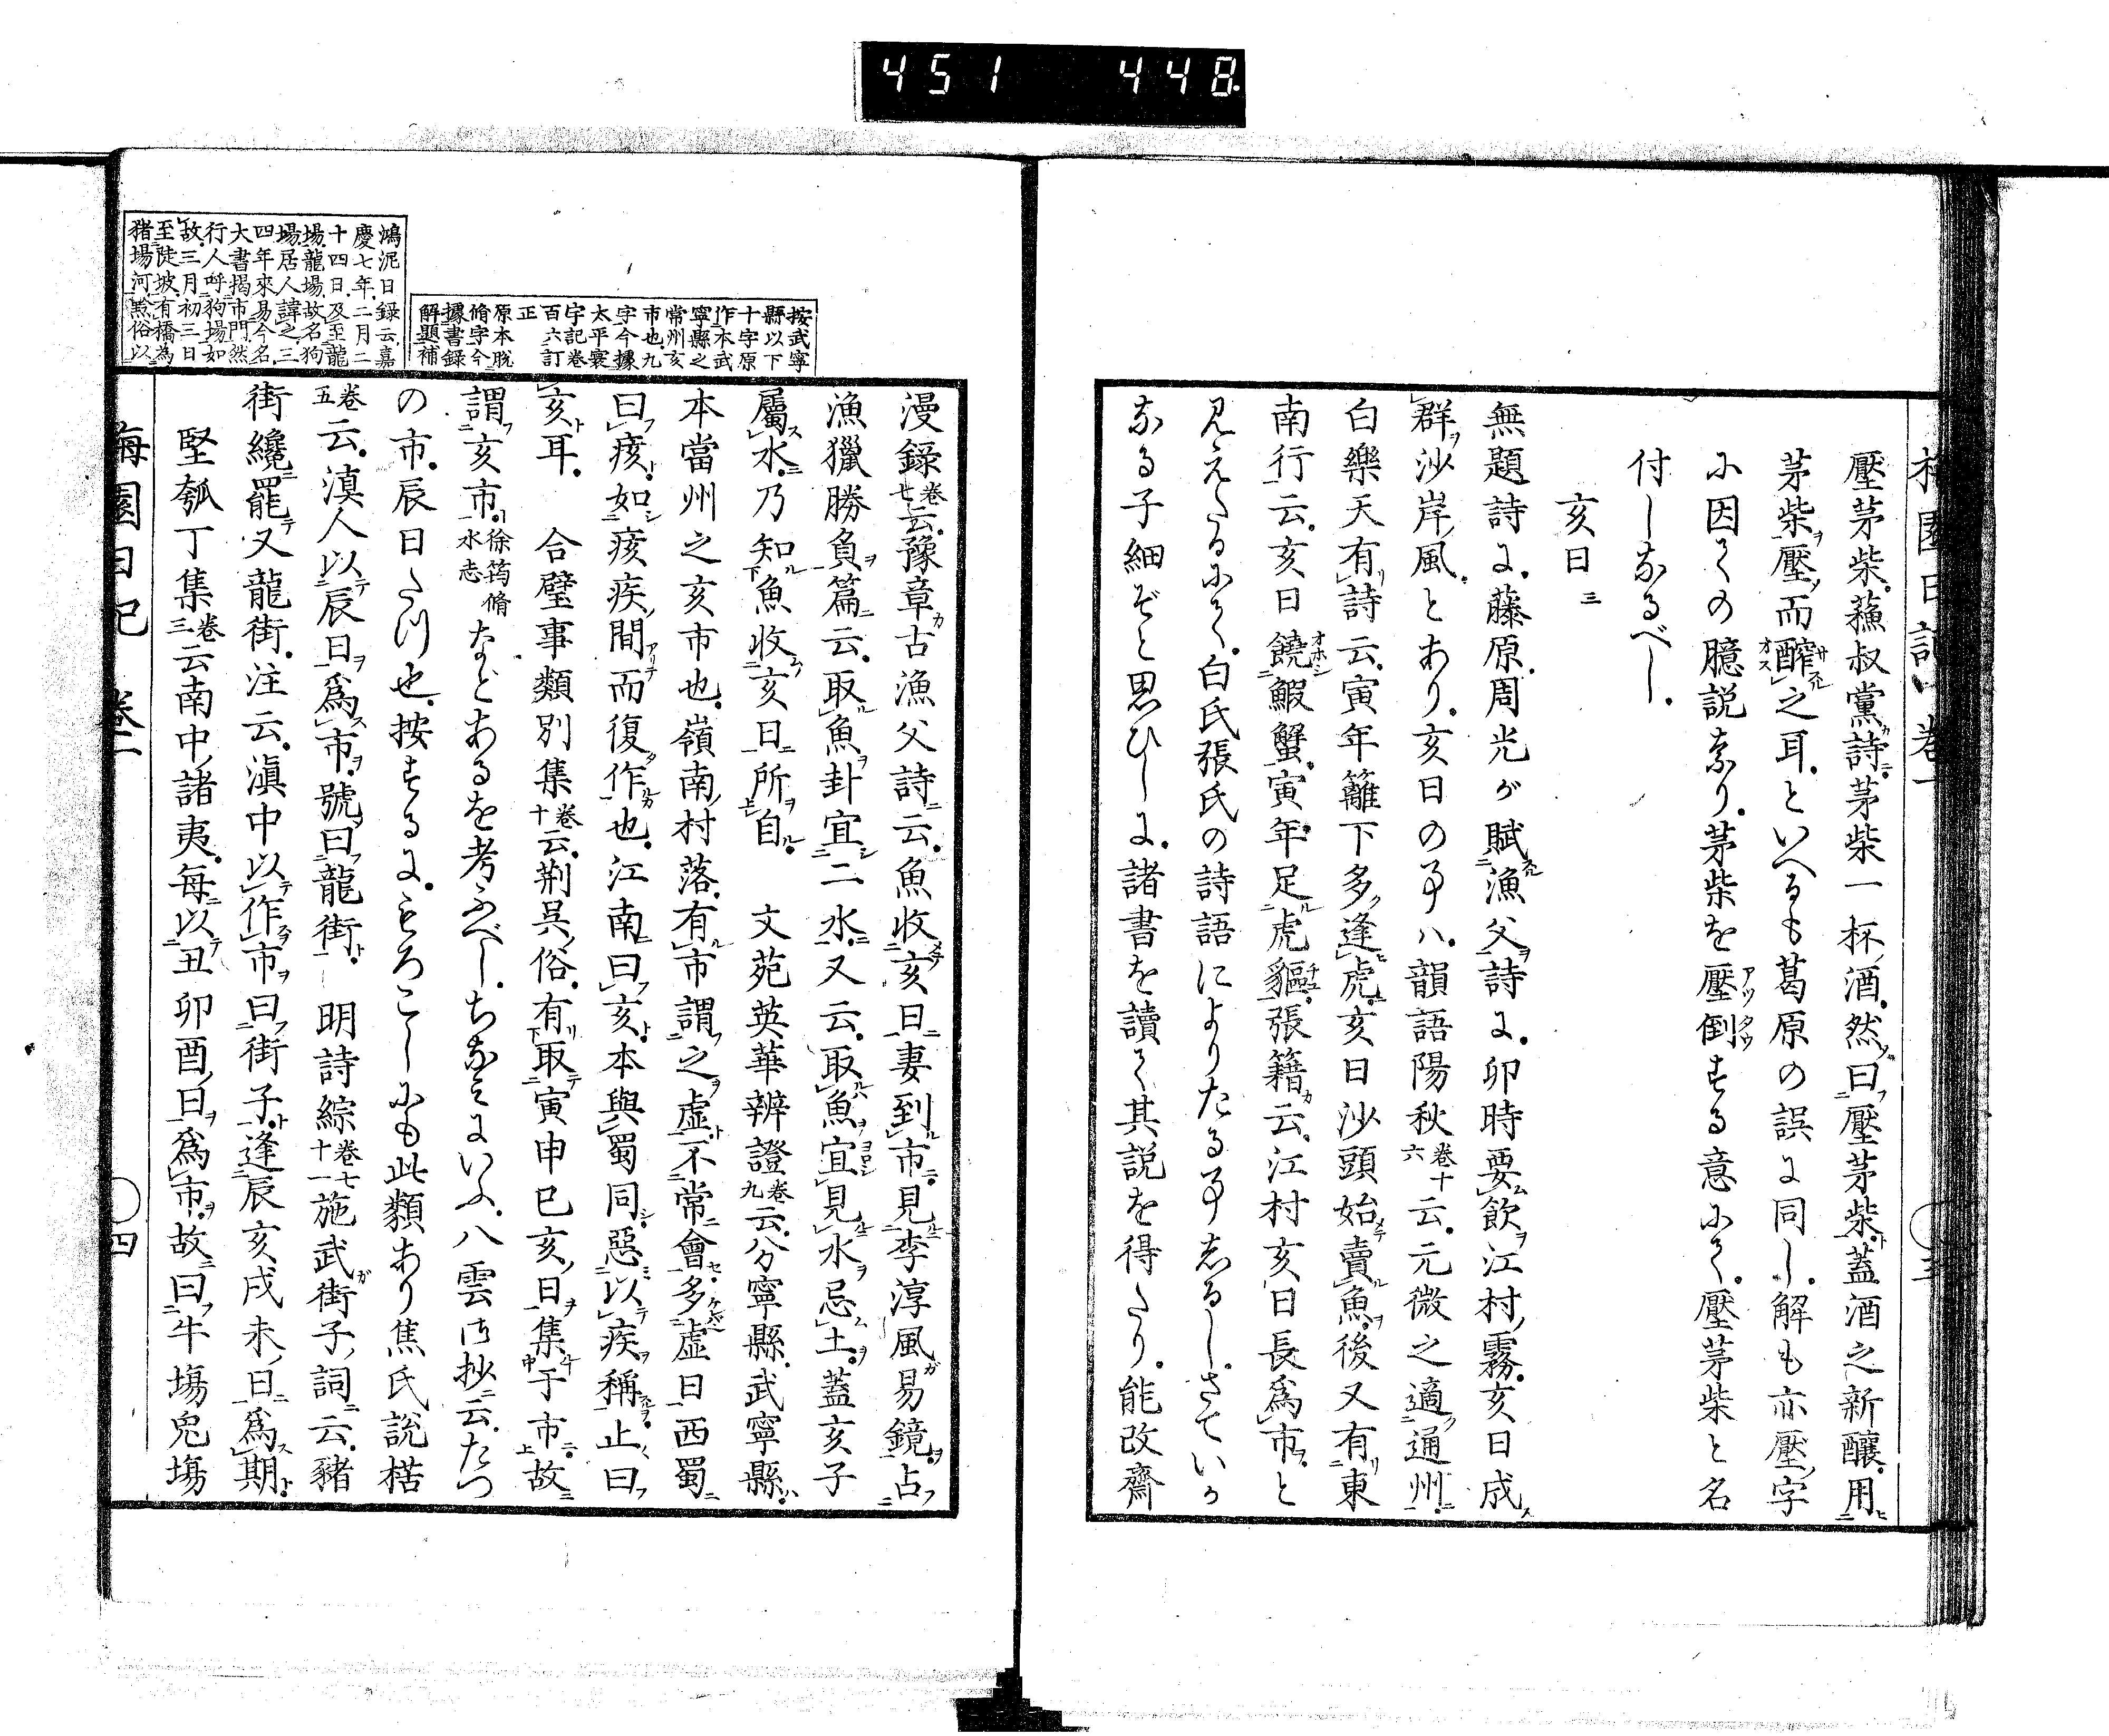 451 448.
壓茅柴。蘓叔黨詩。茅柴一杯酒。然曰壓茅柴。蓋酒之新釀。用
茅柴壓而醡之耳。といへるも葛原の誤に同し。解も亦壓字
に因ての臆説なり。茅柴を壓倒する意にて。壓茅柴と名
付しなるべし。
亥日三
無題詩に。藤原周光が賦漁父詩に。卯時要飲江村霧。亥日成
群沙岸風。とあり。亥日の事ハ。韻語陽秋卷十六云。元微之適通州。
白樂天有詩云。寅年籬下多逢虎。亥日沙頭始賣魚。後又有東
南行云。亥日饒鰕蟹。寅年足虎貙。張籍云。江村亥日長爲市。と
見えたるにて。白氏張氏の詩語によりたる事志るし。さていか
なる子細ぞと思ひしに。諸書を讀て其説を得たり。能改齋
漫録卷七云。豫章古漁父詩云。魚收亥日妻到市。見李淳風易鏡。占
漁獵勝負篇云。取魚卦宜二水。又云。取魚宜見水忌土。蓋亥子
屬水。乃知魚收亥日所自。 文苑英華辨證卷九云。分寧縣。武寧縣。
本當州之亥市也。嶺南村落。有市謂之虚。不常會多虚日。西蜀
曰痎。如痎疾間而復作也。江南曰亥。本與蜀同。惡以疾稱。止曰
亥耳。 合璧事類別集卷十云。荆呉俗。有取寅申巳亥日集于市。故
謂亥市。徐筠脩水志などあるを考ふべし。ちなみにいふ。八雲御抄云。たつ
の市。辰日たつ也。按するに。もろこしにも此類あり焦氏説楛
卷五云。滇人以辰日爲市。號曰龍街。 明詩綜卷七十一施武街子詞云。豬
街纔罷又龍街。注云。滇中以作市曰街子。逢辰亥戌未日爲期。
堅瓠丁集卷三云南中諸夷。每以丑卯酉日爲市。故曰牛塲兔塲
按武寧
縣以下
十字原
作本武
寧縣之
常州亥
市也九
字今據
太平寰
宇記卷
百六訂
正
原本脱
脩字今
據書録
解題補
鴻泥日録云嘉
慶七年二月二
十四日及至龍
場龍場故名狗
場居人諱之三
四年來易今名
大書揭市門然
行人呼狗場如
故三月初三日
至陡坡有橋為
豬場河黔俗以
梅園日記 卷二 四